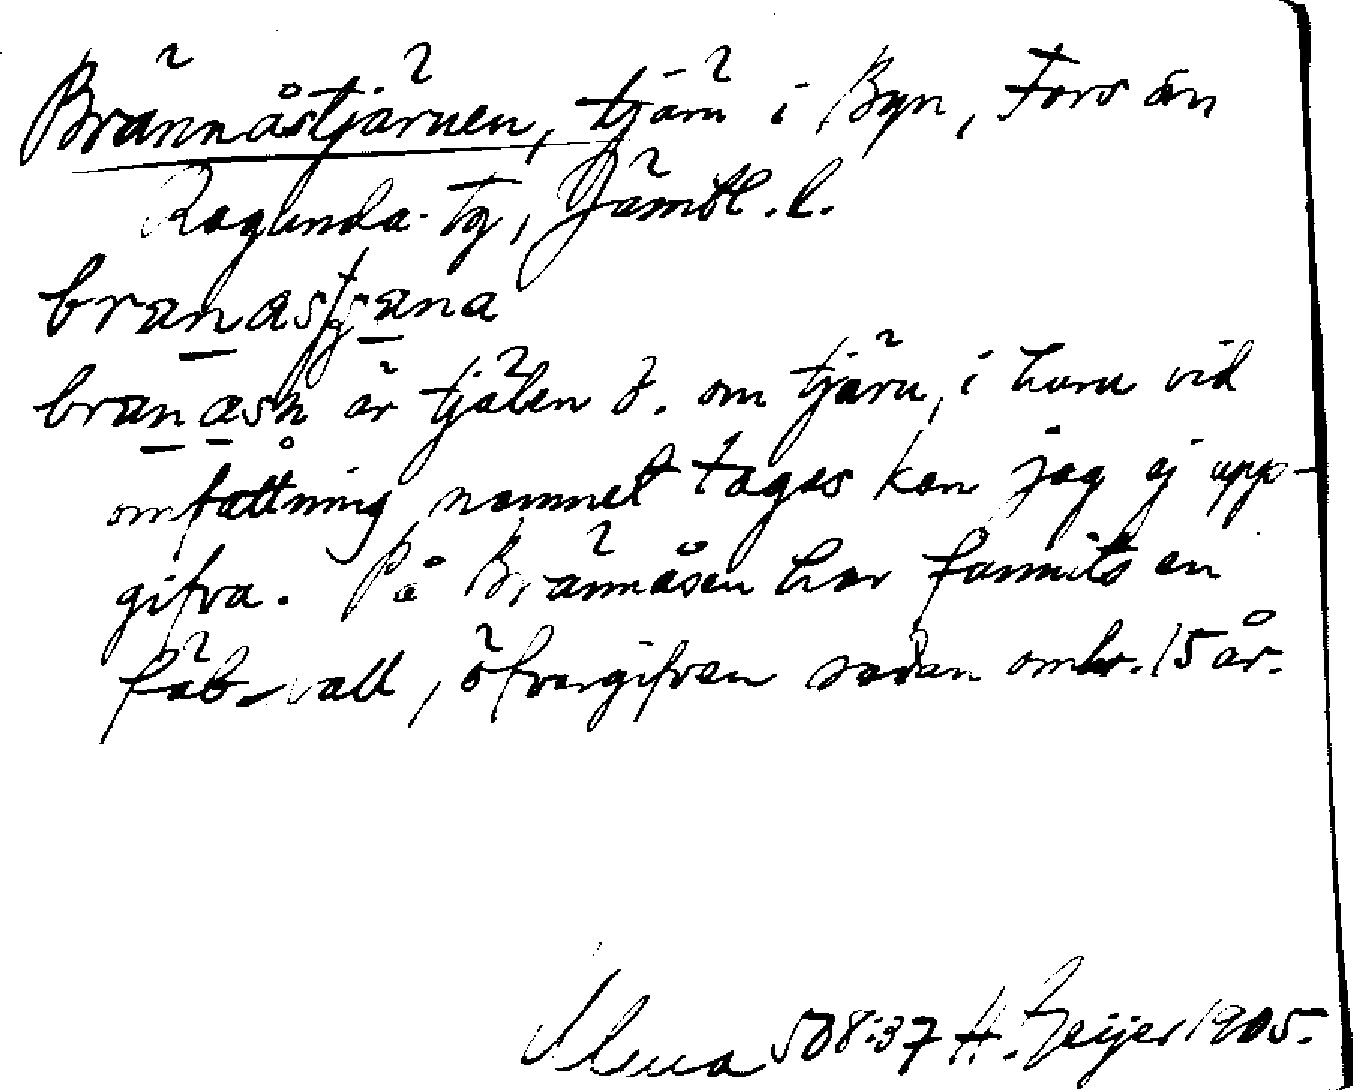 Brännåstjärnen, tjärn i Byn, Fors sn
Ragunda tg, Jämtl. l.
branastjana
branåsn är tjälen ö. om tjärn, i hvru vid
omfattning namnet tages kan jag ej upp-
gifva. På Brännåsen har funnits en
fäb-vall, öfvergifven sedan omkr. 15 år.
Ulma 508:37 H. Geijer 1905.